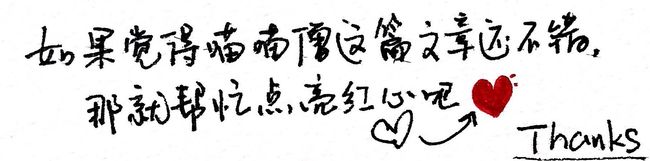 如果觉得喵喵僧这篇文章还不错,
那就帮忙点亮红心吧
Thanks